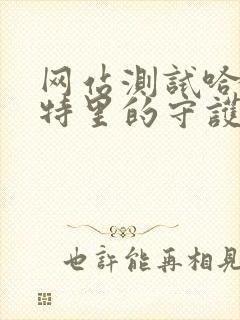 网站測試哈
特里的守護
也許能再相見